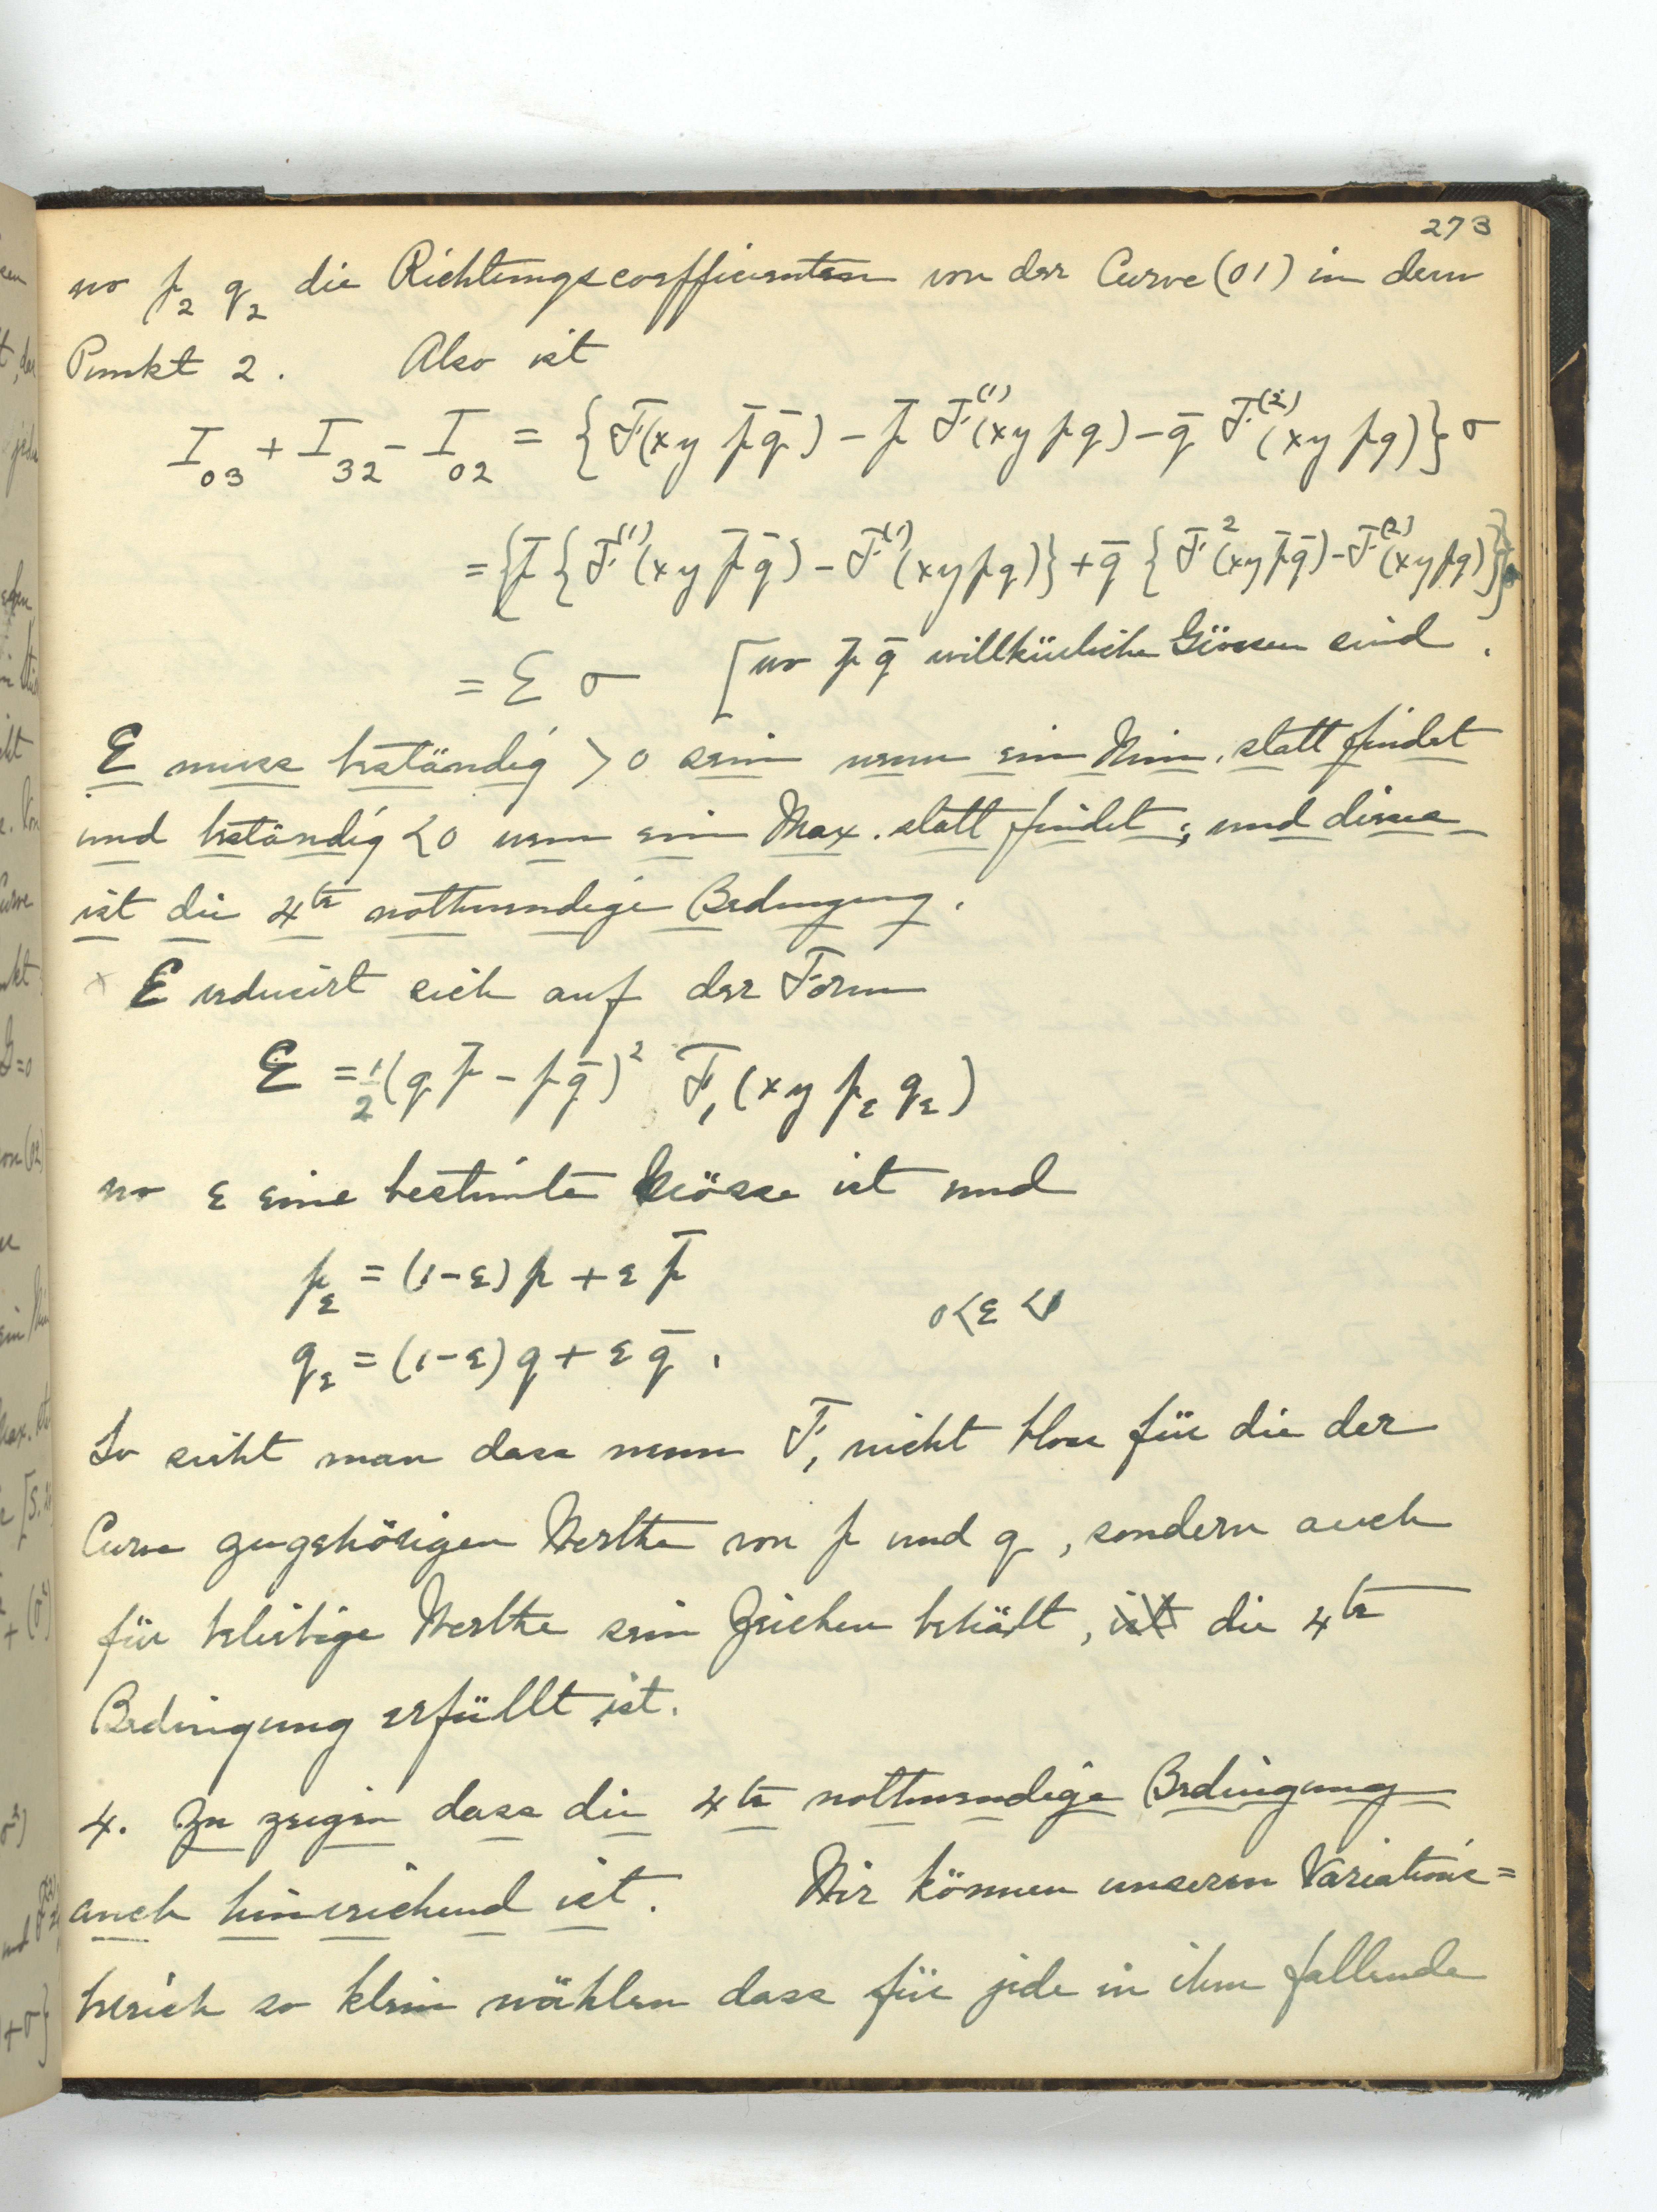 273
wo p₂ q₂ die Richtungscoefficienten von der Curve (01) in dem
Punkt 2. Also ist
I₀₃ + I₃₂ - I₀₂ = {F(xy p̄ q̄) - p̄ F⁽¹⁾(xy pq) - q̄ F⁽²⁾(xy pq)} σ
= {p̄ {F⁽¹⁾(xy p̄ q̄) - F⁽¹⁾(xy pq)} + q̄ {F²(xy p̄ q̄) - F⁽²⁾(xy pq)}}
= Ɛ σ [wo p̄ q̄ willkürliche Grössen sind.
Ɛ muss beständig > 0 sein wenn ein Min. statt findet
und beständig < 0 wenn ein Max. statt findet; und dieses
ist die 4te nothwendige Bedingung.
x Ɛ reducirt sich auf der Form
Ɛ = ½ (q p̄ - p q̄)² F₁(xy p_ε q_ε)
wo ε eine bestimte Grösse ist und
p_ε = (1-ε) p + ε p̄
0 < ε < 1
q_ε = (1-ε) q + ε q̄.
So sieht man dass wenn F₁ nicht bloss für die der
Curve zugehörigen Werthe von p und q, sondern auch
für beliebige Werthe sein Zeichen behält, ist die 4te
Bedingung erfüllt ist.
4. Zu zeigen dass die 4te nothwendige Bedingung
auch hinreichend ist. Wir können unseren Variations=
bereich so klein wählen dass für jede in ihm fallende